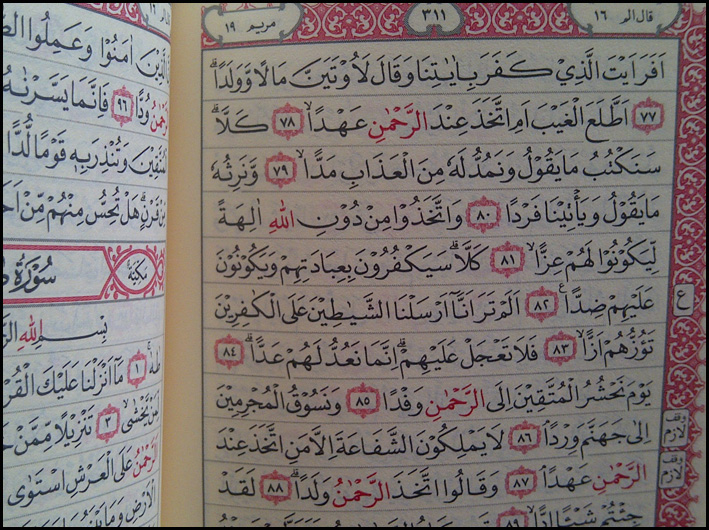 قال الم ١٦ ٣١١ مريم ١٩
اَفَرَاَيْتَ الَّذ۪ي كَفَرَ بِاٰيَاتِنَا وَقَالَ لَاُو۫تَيَنَّ مَالًا وَوَلَدًاۜ
﴿٧٧﴾ اَطَّلَعَ الْغَيْبَ اَمِ اتَّخَذَ عِنْدَ الرَّحْمٰنِ عَهْدًاۙ ﴿٧٨﴾ كَلَّاۜ
سَنَكْتُبُ مَا يَقُولُ وَنَمُدُّ لَهُ مِنَ الْعَذَابِ مَدًّاۙ ﴿٧٩﴾ وَنَرِثُهُ
مَا يَقُولُ وَيَأْت۪ينَا فَرْدًا ﴿٨٠﴾ وَاتَّخَذُوا مِنْ دُونِ اللّٰهِ اٰلِهَةً
لِيَكُونُوا لَهُمْ عِزًّاۙ ﴿٨١﴾ كَلَّاۜ سَيَكْفُرُونَ بِعِبَادَتِهِمْ وَيَكُونُونَ
عَلَيْهِمْ ضِدًّا۟ ﴿٨٢﴾ اَلَمْ تَرَ اَنَّٓا اَرْسَلْنَا الشَّيَاط۪ينَ عَلَى الْكَافِر۪ينَ
ع
تَؤُزُّهُمْ اَزًّاۙ ﴿٨٣﴾ فَلَا تَعْجَلْ عَلَيْهِمْۜ اِنَّمَا نَعُدُّ لَهُمْ عَدًّاۜ ﴿٨٤﴾
يَوْمَ نَحْشُرُ الْمُتَّق۪ينَ اِلَى الرَّحْمٰنِ وَفْدًا ﴿٨٥﴾ وَنَسُوقُ الْمُجْرِم۪ينَ
اِلٰى جَهَنَّمَ وِرْدًاۢ ﴿٨٦﴾ لَا يَمْلِكُونَ الشَّفَاعَةَ اِلَّا مَنِ اتَّخَذَ عِنْدَ
وقف لازم
الرَّحْمٰنِ عَهْدًاۢ ﴿٨٧﴾ وَقَالُوا اتَّخَذَ الرَّحْمٰنُ وَلَدًاۜ ﴿٨٨﴾ لَقَدْ
وقف لازم
جِئْتُمْ شَيْـًٔا اِدًّاۙ ﴿٨٩﴾
اٰمَنُوا وَعَمِلُوا
الرَّحْمٰنُ وُدًّا ﴿٩٦﴾ فَاِنَّمَا يَسَّرْنَاهُ
الْمُتَّق۪ينَ وَتُنْذِرَ بِه۪ قَوْمًا لُدًّا
مِنْ قَرْنٍۜ هَلْ تُحِسُّ مِنْهُمْ مِنْ
سُورَةُ مَكِّيَّة
بِسْمِ اللّٰهِ
طٰهٰۜ ﴿١﴾ مَٓا اَنْزَلْنَا عَلَيْكَ
لِمَنْ يَخْشٰىۙ ﴿٣﴾ تَنْز۪يلًا مِمَّنْ
الرَّحْمٰنُ عَلَى الْعَرْشِ اسْتَوٰى
الْاَرْضِ وَمَا بَيْنَهُمَا